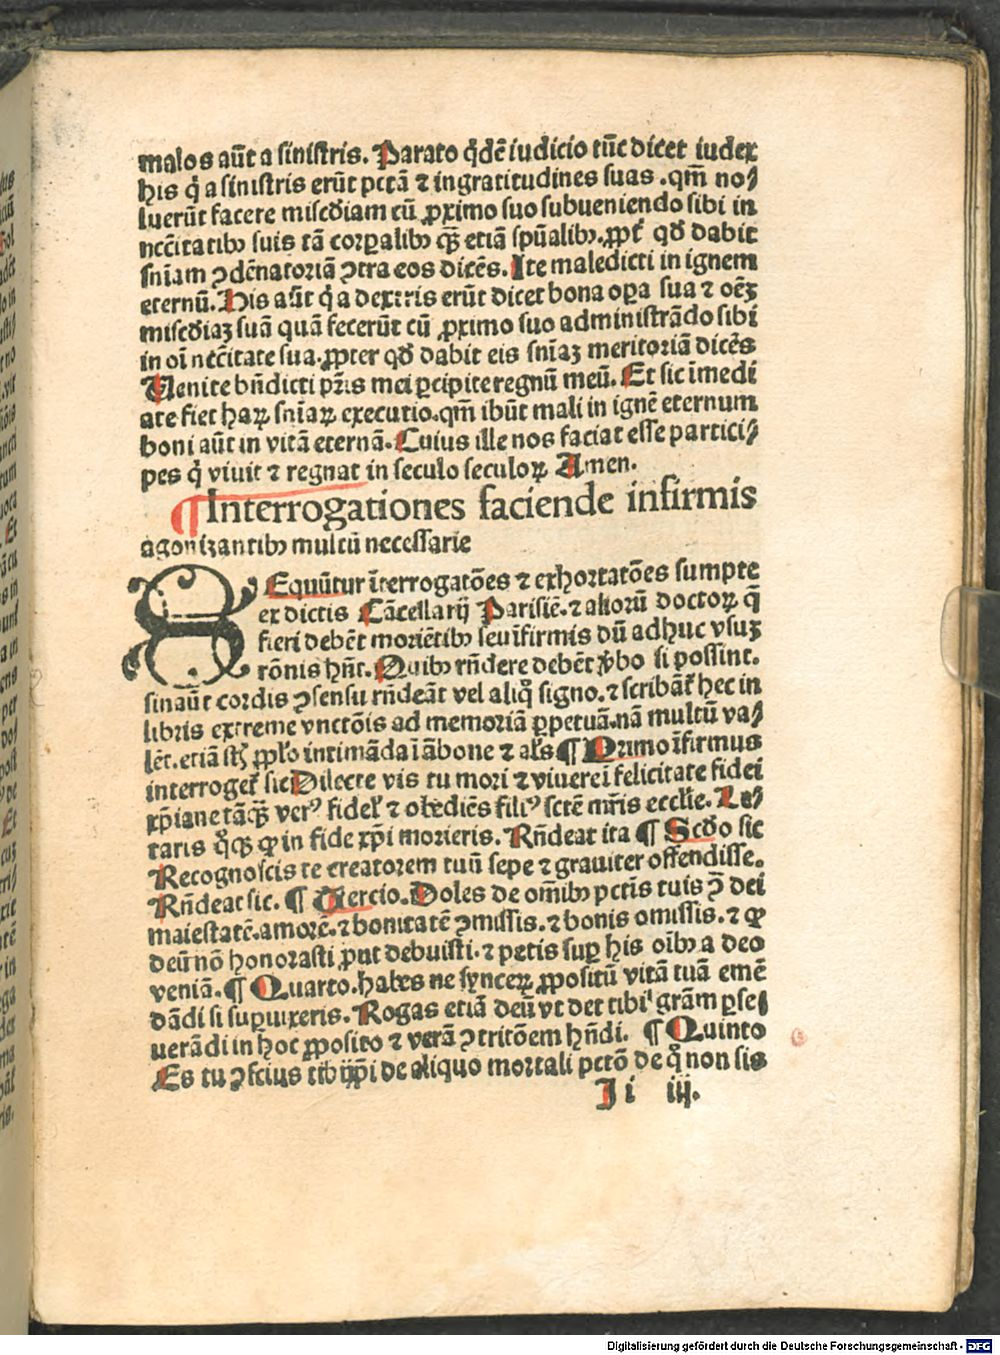 malos aūt a sinistris. Parato q̇dē iudicio tūc dicet iudex
his q̇ a sinistris erūt pctā ⁊ ingratitudines suas .qm̄ no⸗
luerūt facere misc̄diam cū ꝓximo suo subueniendo sibi in
ncc̄itatibꝫ suis tā corꝑalibꝫ qꝫ̄ etiā spūalibꝫ.ꝓpt̄ qd̄ dabit
sniam ↄdēnatoriā ↄtra eos dicēs. Ite maledicti in ignem
eternū. His aūt q̇ a dextris erūt dicet bona oꝑa sua ⁊ oēꝫ
misc̄diaꝫ suā quā fecerūt cū ꝓximo suo administrādo sibi
in oī necc̄itate sua.ꝓpter qd̄ dabit eis sn̄iaꝫ meritoriā dicēs
Uenite bn̄dicti pr̄is mei ꝑcipite regnū meū. Et sic īmedi
ate fiet haꝝ sn̄iaꝝ executio.qm̄ ibūt mali in ignē eternum
boni aūt in vitā eternā. Cuius ille nos faciat esse partici⸗
pes q̇ viuit ⁊ regnat in seculo seculoꝝ Amen.
¶Interrogationes faciende infirmis
agonizantibꝫ multū necessarie
SEquūtur īterrogatōes ⁊ exhortatōes sumpte
ex dictis Cācellarij Parisiē.⁊ alioꝝ doctoꝝ q̄
fieri debēt moriētibꝫ seu īfirmis dū adhuc vsuꝫ
rōnis hn̄t. Quibꝫ rn̄dere debēt v̄bo si possint.
sinaūt cordis ↄsensu rn̄deāt vel aliq̊ signo.⁊ scribāt̄ hec in
libris extreme vnctōis ad memoriā ꝑpetuā.nā multū va⸗
lēt. etiā ꝓpl̄o intimāda ī ābone ⁊ al̄s ¶ Primo īfirmus
interroget̄ sic Dilecte vis tu mori ⁊ viuere ī felicitate fidei
xp̄iane tāqꝫ̄ verꝰ fidel̄ ⁊ obediēs filiꝰ sctē mr̄is eccl̄ie. Le⸗
taris q̊qꝫ ꝙ in fide xp̄i morieris. Rn̄deat ita ¶ Scd̄o sic
Recognoscis te creatorem tuū sepe ⁊ grauiter offendisse.
Rn̄deat sic. ¶ Tercio. Doles de om̄ibꝫ pctīs tuis ↄ̄ dei
maiestatē.amorē.⁊ bonitatē ↄmissis.⁊ bonis omissis.⁊ ꝙ
deū nō honorasti ꝓut debuisti.⁊ petis suꝑ his oībꝫ a deo
veniā. ¶ Quarto. habes ne synceꝝ ꝓpositū vitā tuā emē
dādi si suꝑuixeris. Rogas etiā deū vt det tibi grām ꝑse⸗
uerādi in hoc ꝓposito ⁊ verā ↄtritōem hn̄di. ¶ Quinto
Es tu ↄscius tibijp̄i de aliquo mortali pctō de q̊ non sis
Ii iij.
Digitalisierung gefördert durch die Deutsche Forschungsgemeinschaft - DFG